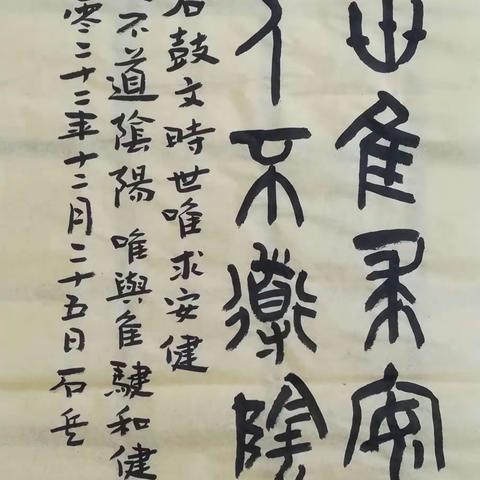 世隹求安
不道陰
石鼓文時世唯求安健
不道陰陽 唯與隹騝和健
零二十二年十二月二十五日石兵